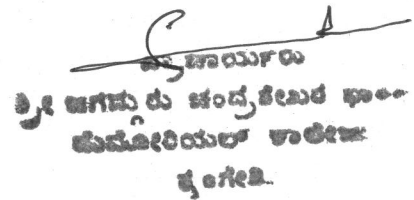 ಪ್ರಾಚಾರ್ಯರು
ಶ್ರೀ ಜಗದ್ಗುರು ಚಂದ್ರಶೇಖರ ಭಾರತೀ
ಮೆಮೋರಿಯಲ್ ಕಾಲೇಜು
ಶೃಂಗೇರಿ.